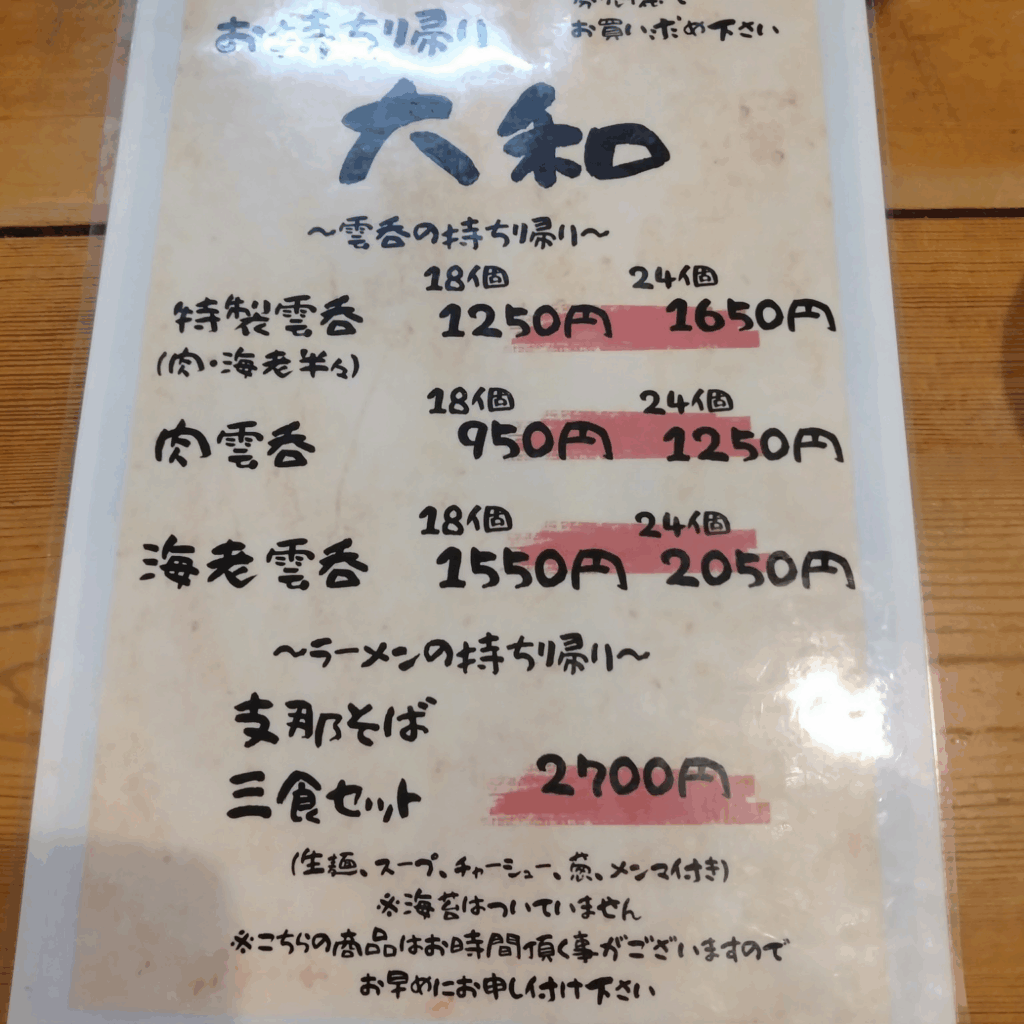 お持ち帰り
お買い求め下さい
大和
～雲呑の持ち帰り～
18個 24個
特製雲呑 1250円 1650円
(肉・海老半々)
18個 24個
肉雲呑 950円 1250円
18個 24個
海老雲呑 1550円 2050円
～ラーメンの持ち帰り～
支那そば
三食セット 2700円
(生麺、スープ、チャーシュー、葱、メンマ付き)
※海苔はついていません
※こちらの商品はお時間頂く事がございますので
お早めにお申し付け下さい